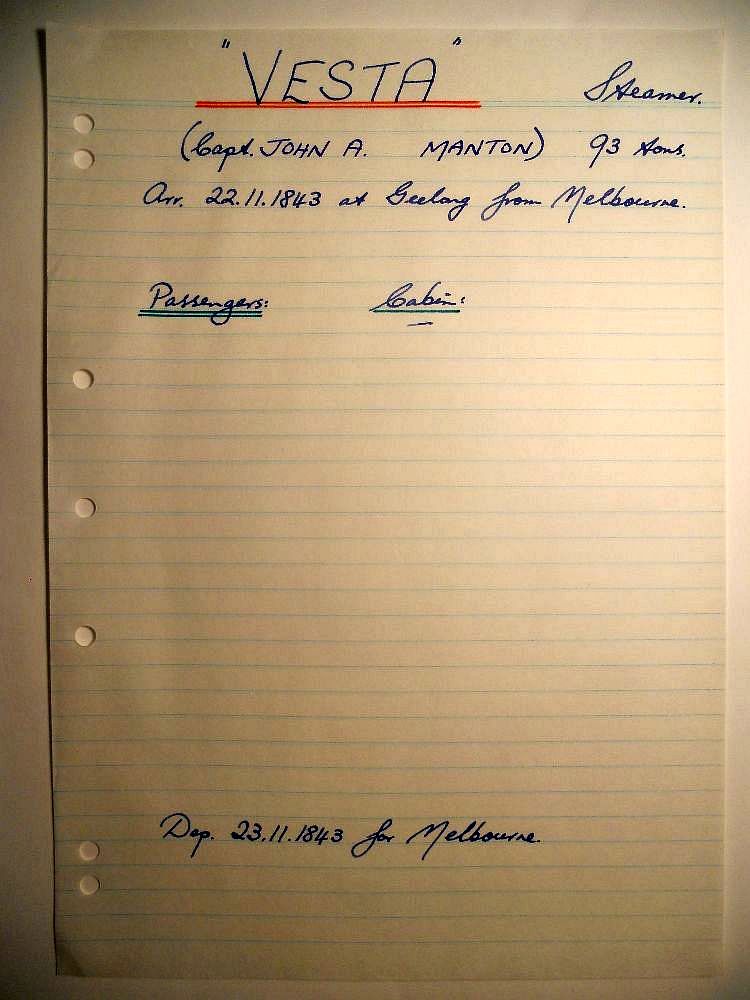 "VESTA" Steamer.
(Capt. JOHN A. MANTON) 93 tons.
Arr. 22.11.1843 at Geelong from Melbourne.
Passengers: Cabin:
—
Dep. 23.11.1843 for Melbourne.